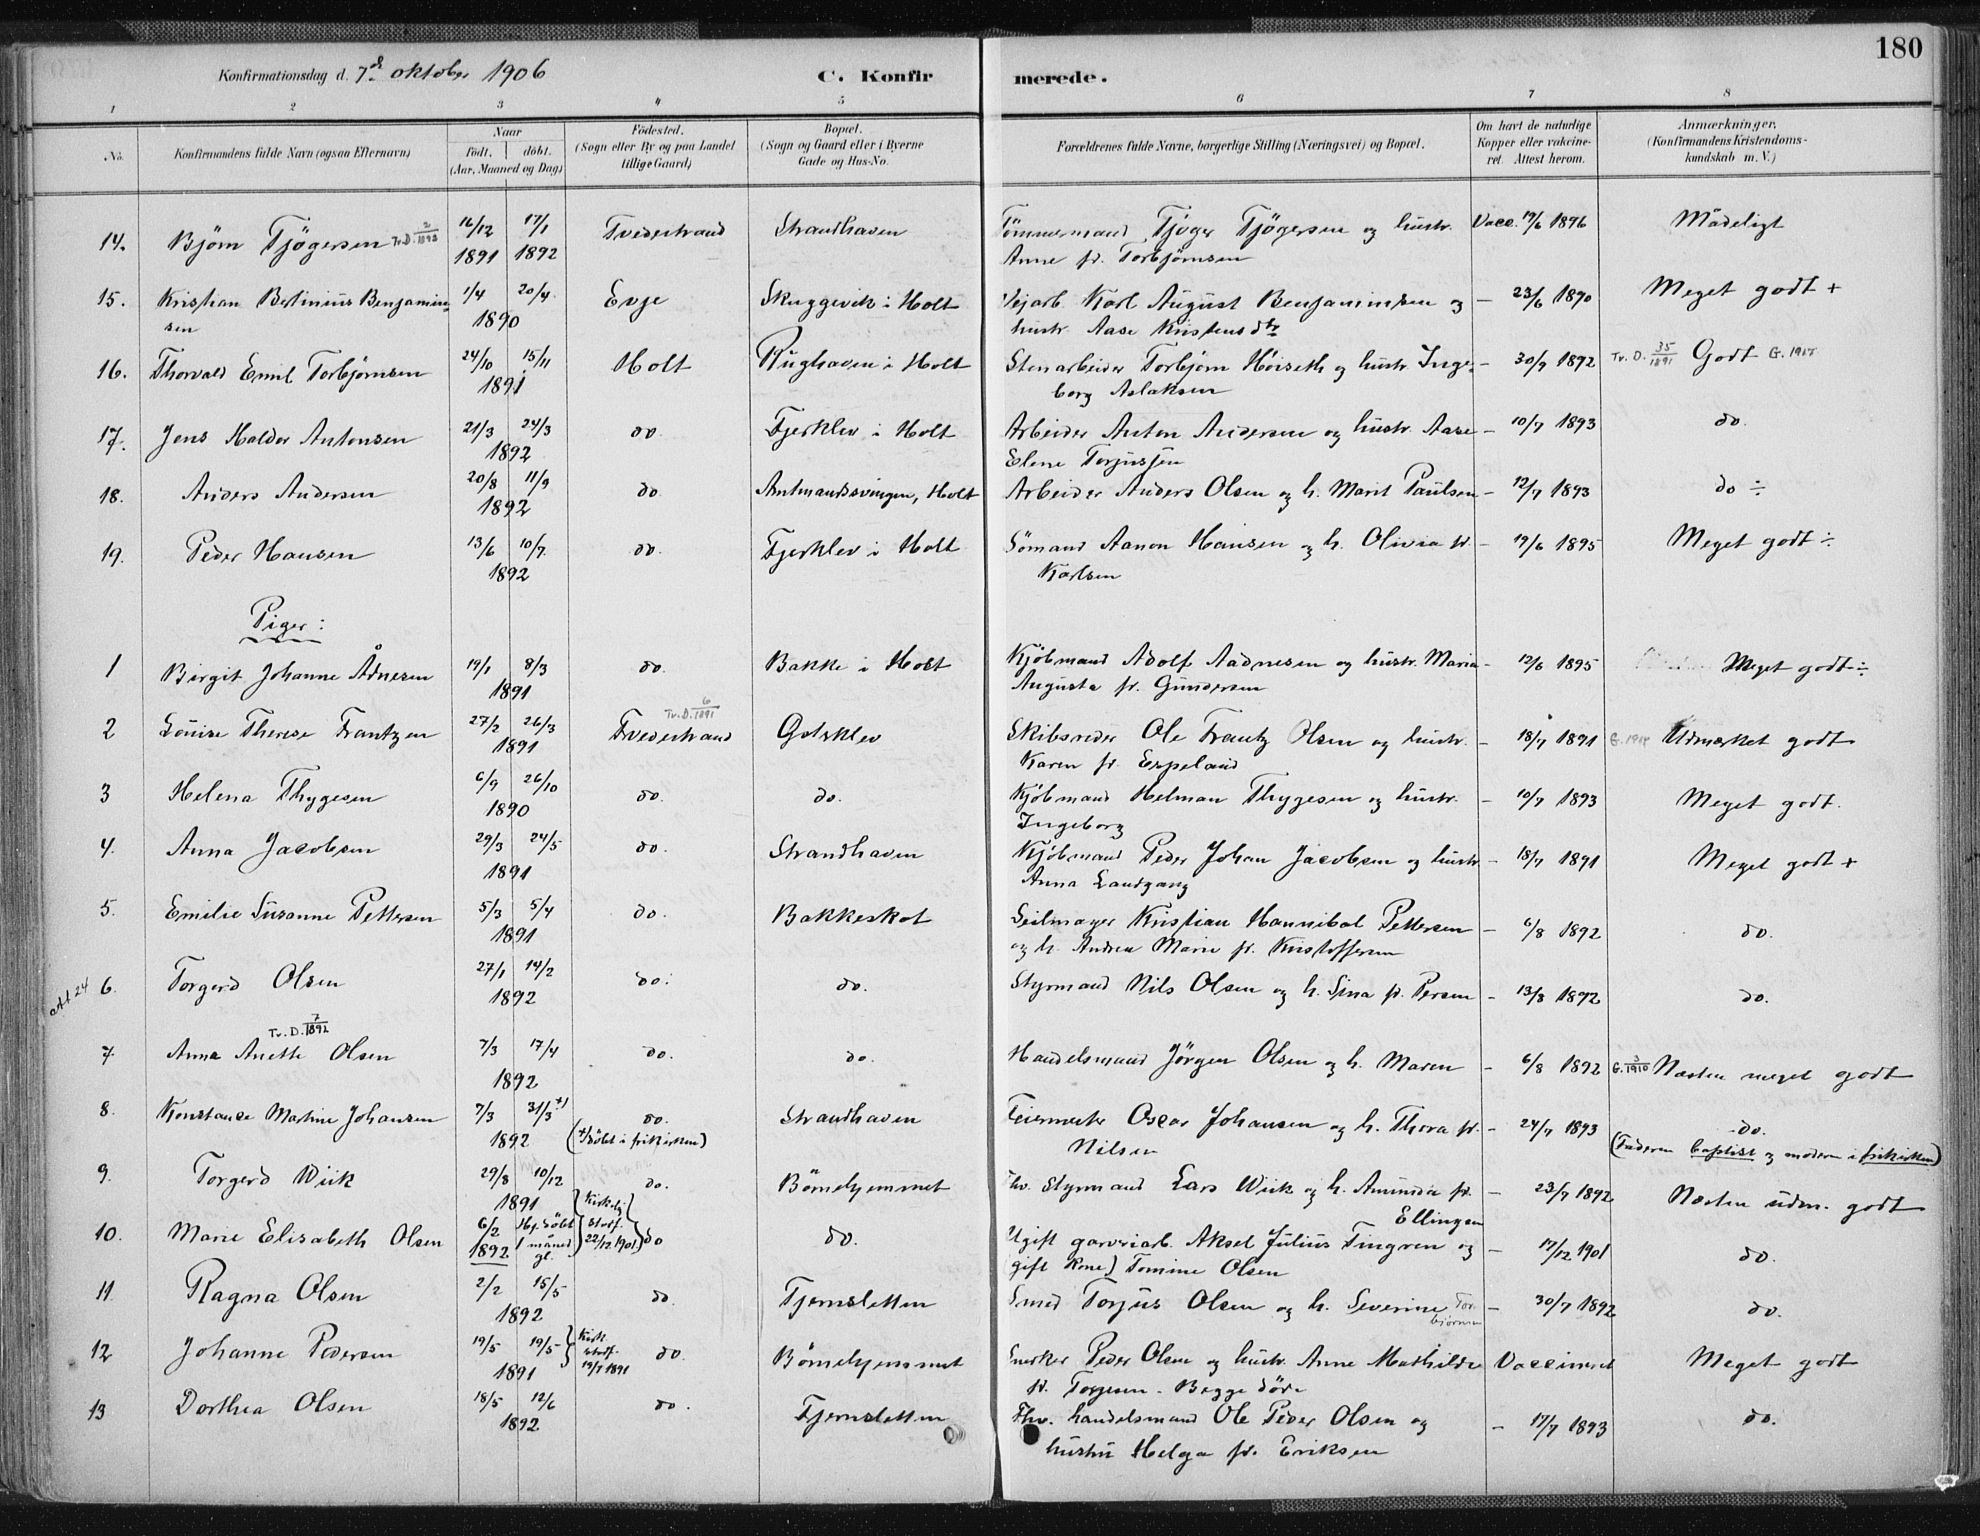 180
Konfirmationsdag d. 7de oktober 1906 C. Konfirmerede.
1 2 3 4 5 6 7 8
No. Konfirmandens fulde Navn (ogsaa Efternavn) Naar Födt. döbt. (Aar, Maaned og Dag) Födested. (Sogn eller By og paa Landet tillige Gaard) Bopæl. (Sogn og Gaard eller i Byerne Gade og Hus-No. Forældrenes fulde Navne, borgerlige Stilling (Næringsvei) og Bopæl. Om havt de naturlige Kopper eller vakcineret. Attest herom. Anmærkninger, (Konfirmandens Kristendomskundskab m. V.)
14. Bjørn Tjøgersen Tv.D. 2/1892 16/12 1891 17/1 1892 Tvedestrand Strandhaven Tømmermand Tjøger Tjøgersen og hustr. Vacc. 19/6 1896 Mådeligt
Anne f. Torbjørnsen
15. Kristian Bertinius Benjamin- 1/4 20/4 Evje Skuggevik i Holt Vejarb. Karl August Benjaminsen og — 23/6 1890 Meget godt +
sen 1890 hustr. Aase Kristensdtr
16. Thorvald Emil Torbjørnsen 24/10 15/11 1891 Holt Rughaven i Holt Stenarbeider Torbjørn Höiseth og hustr. Inge- — 30/7 1892 Tv. D. 35/1891 Godt
borg Aslaksen
17. Jens Haldor Antonsen 21/3 24/3 1892 do. Fjerklev i Holt Arbeider Anton Andersen og hustr. Aase — 10/7 1893 do.
Elene Torjussen
18. Anders Andersen 20/8 11/9 1892 do Amtmandssvingen, Holt Arbeider Anders Olsen og h. Marit Paulsen — 12/7 1893 do ÷
19. Peder Hansen 13/6 10/7 1892 do. Fjerklev i Holt Sömand Aanon Hansen og h. Olivia f. — 19/6 1895 Meget godt ÷
Karlsen
Piger:
1 Birgit Johanne Ådnesen 19/1 8/3 1891 do. Bakke i Holt Kjöbmand Adolf Aadnesen og hustr. Maria — 12/6 1895 Meget godt ÷
Augusta f. Gundersen
2 Louise Therese Frantzen 27/2 26/3 1891 Tv.D. 6/1891 Tvedestrand Golsklev Skibsreder Ole Frantz Olsen og hustr. — 18/7 1891 Udmerket godt
Karen f. Espeland
3 Helena Thygesen 6/9 26/10 1890 do. do. Kjöbmand Helman Thygesen og hustr. — 10/7 1893 Meget godt.
Ingeborg
4. Anna Jacobsen 29/3 24/5 1891 do. Strandhaven Kjöbmand Peder Johan Jacobsen og hustr. — 18/7 1891 Meget godt +
Anna Landgang
5. Emilie Susanne Pettersen 5/3 5/4 1891 do. Bakkeskot Seilmager Kristian Hannibal Pettersen — 6/8 1892 do.
og h. Andrea Marie f. Kristoffersen
6. Torgerd Olsen 27/1 14/2 1892 do. do. Styrmand Nils Olsen og h. Sina f. Persen — 13/8 1892 do.
Tv. D. 7/1892
7. Anna Anette Olsen 7/3 17/4 1892 do. do. Handelsmand Jörgen Olsen og h. Maren — 6/8 1892 G. 3/1910 Næsten meget godt
8. Konstance Martine Johansen 7/3 31/3 +) 1892 do. Strandhaven Feiermester Oscar Johansen og h. Thora f. — 24/7 1893 do.
(+ döbt i frikirken) Nilsen (Faderen baptist og moderen i frikirken)
9. Torgerd Wiik 29/8 10/12 1891 do. Börnehjemmet Fhv. Styrmand Lars Wiik og h. Amunda f. — 23/7 1892 Næsten udm. godt
Ellingsen
10. Marie Elisabeth Olsen 6/2 1892 Hj.döbt 1 måned gl. Kirkelig stadf. 22/12 1901 do do. Ugift garveriarb. Aksel Julius Tingren og — 17/12 1901 do.
gift kone) Tomine Olsen
11. Ragna Olsen 2/2 15/5 1892 do. Tjernsletten Smed Torjus Olsen og h. Severine Torbjørnsen — 30/7 1892 do.
12 Johanne Pedersen 19/5 19/5 1891 Kirk. stadf. 19/7 1891 do. Börnehjemmet Snedker Peder Olsen og hustr. Anne Mathilde Vaccineret Meget godt
f. Torjesen. Begge döde
13 Dorthea Olsen 18/5 12/6 1892 do. Tjernsletten Fhv. handelsmand Ole Peder Olsen og — 17/7 1893 do.
hustru Helga f. Eriksen